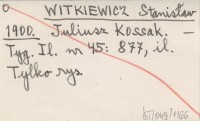 WITKIEWICZ Stanisław
1900. Juliusz Kossak. —
Tyg. Il. nr 45: 877, il.
Tylko rys.